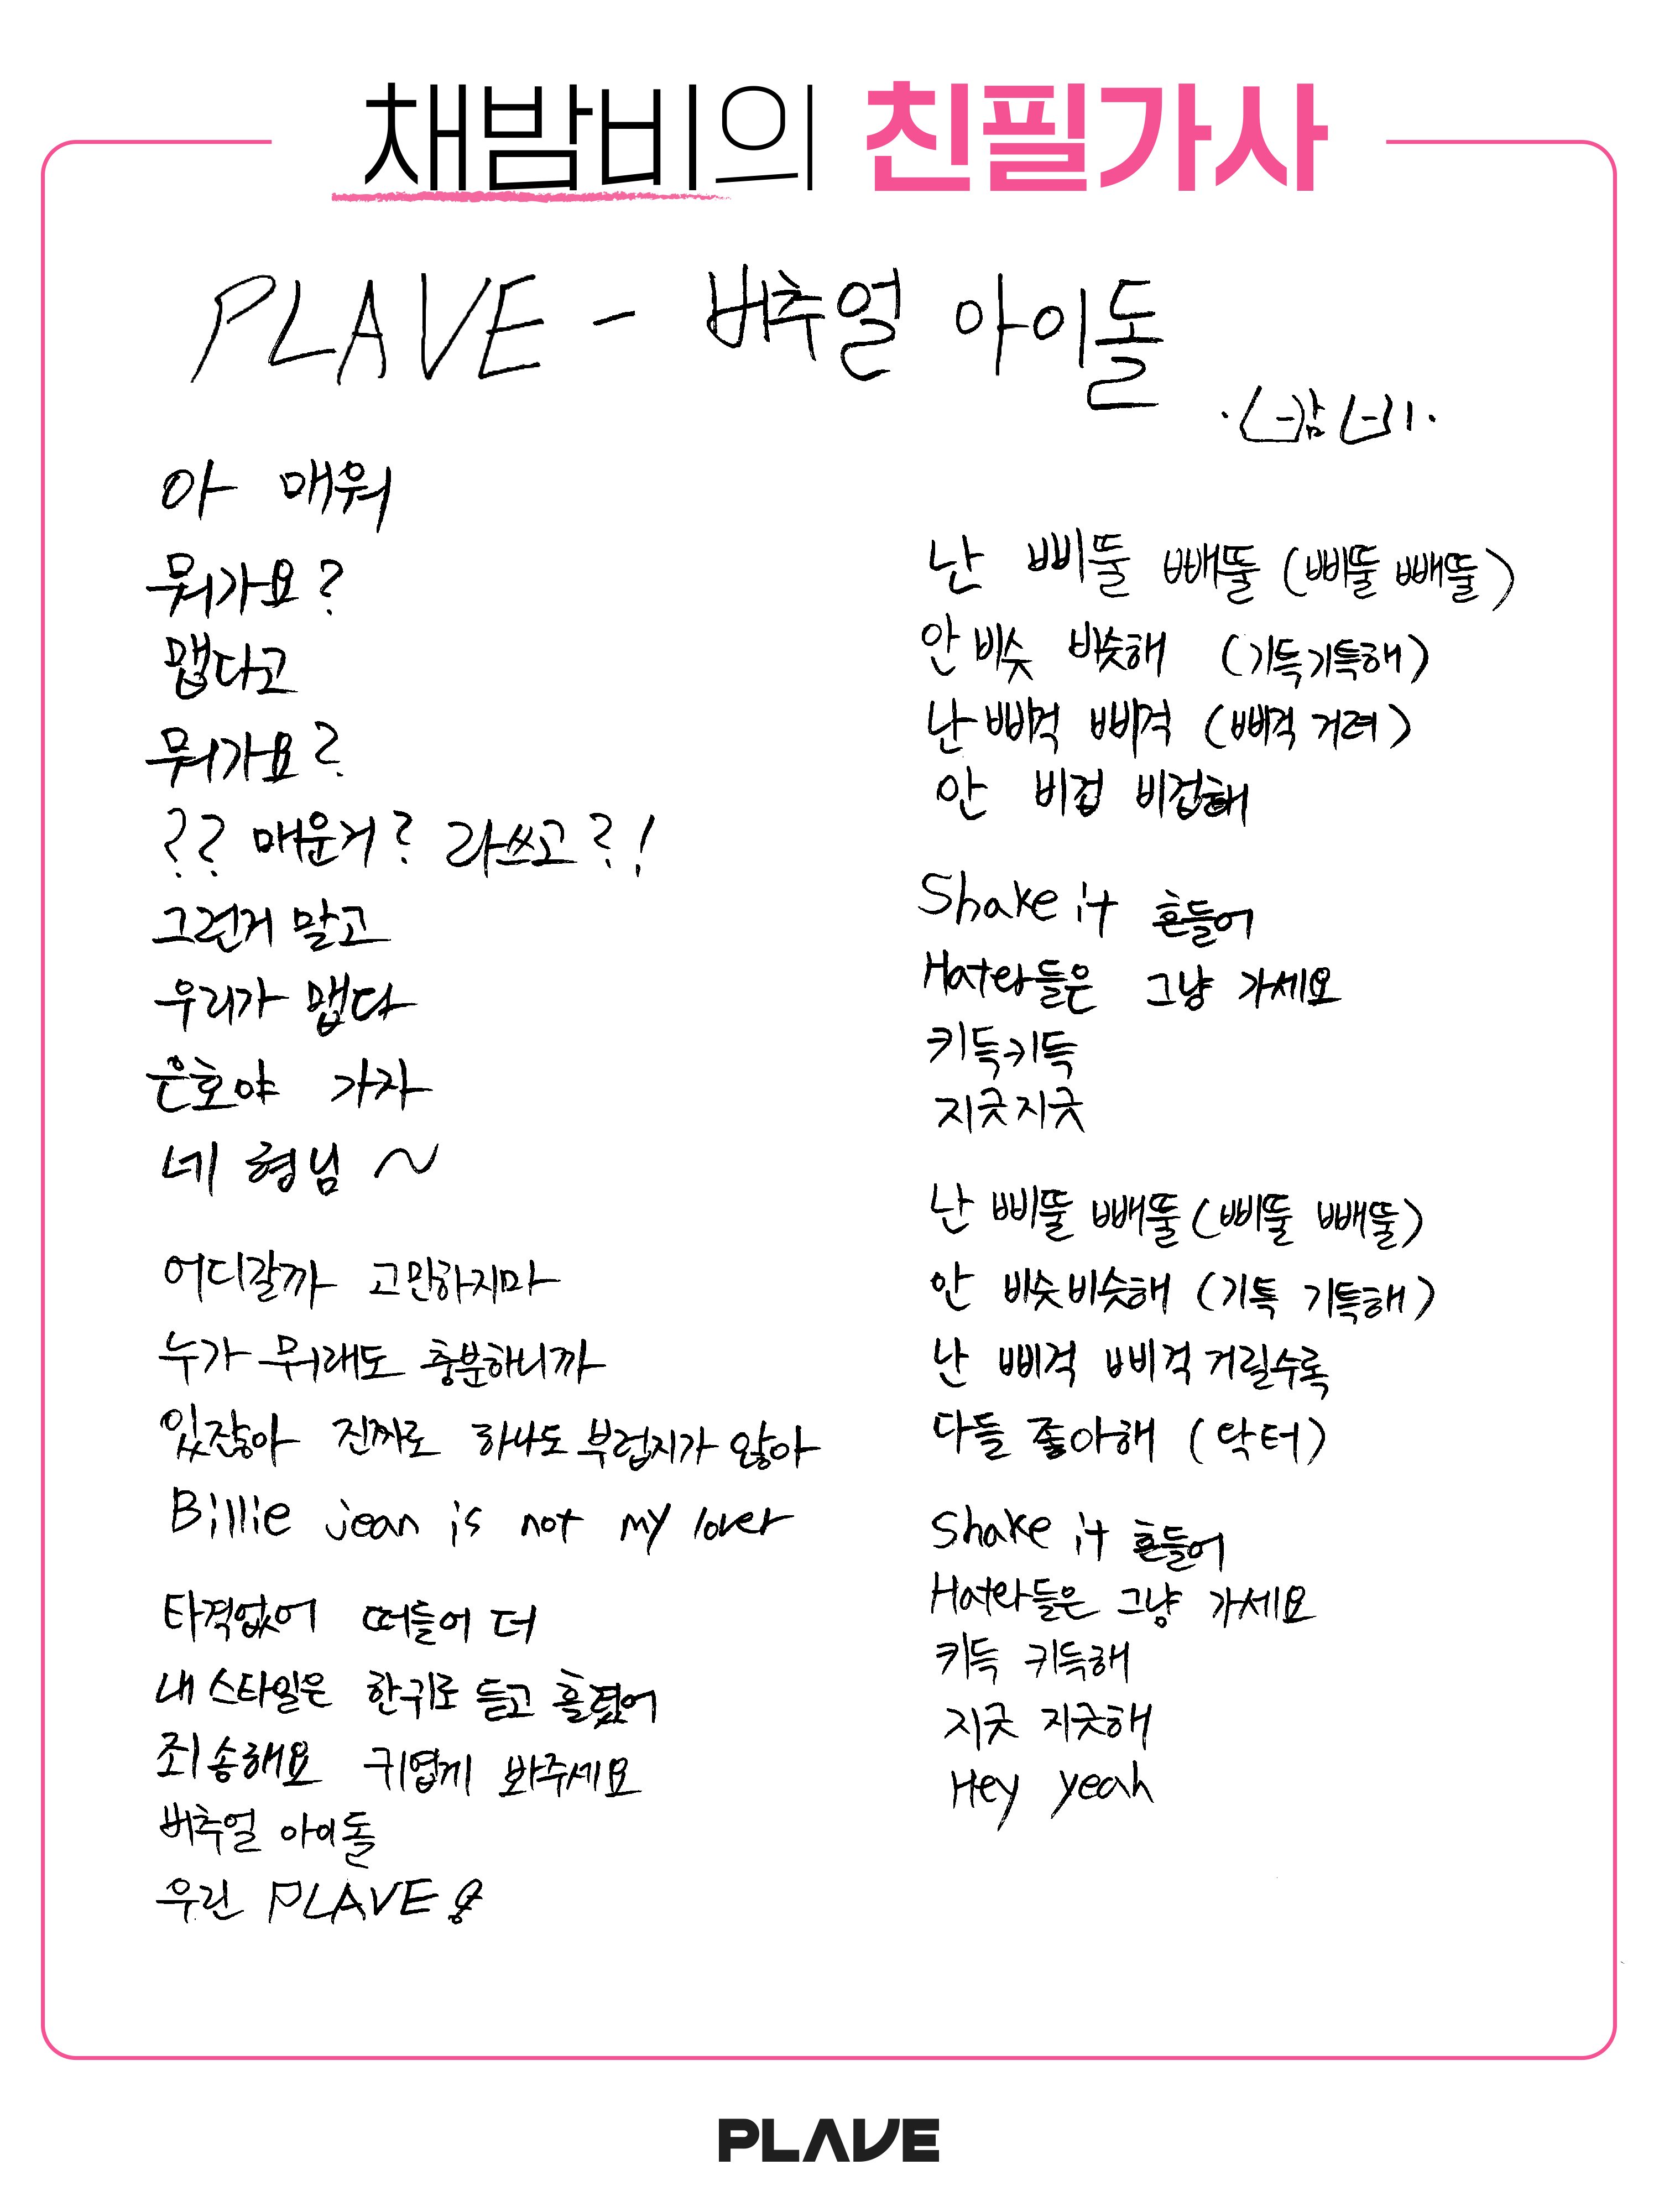 채밤비의 친필가사
PLAVE - 버추얼 아이돌
밤비
아 매워
뭐가요?
맵다고
뭐가요?
?? 매운거? 라쓰고?!
그런거 말고
우리가 맵다
은호야 가자
네 형님~
어디갈까 고민하지마
누가 뭐래도 충분하니까
있잖아 진짜로 하나도 부럽지가 않아
Billie jean is not my lover
타격없어 떠들어 더
내 스타일은 한귀로 듣고 흘렸어
죄송해요 귀엽게 봐주세요
버추얼 아이돌
우린 PLAVE
난 삐뚤 빼뚤 (삐뚤 빼뚤)
안 비슷 비슷해 (기특기특해)
난 삐걱 삐걱 (삐걱 거려)
안 비겁 비겁해
Shake it 흔들어
Hater들은 그냥 가세요
키득키득
지긋지긋
난 삐뚤 빼뚤 (삐뚤 빼뚤)
안 비슷비슷해 (기특 기특해)
난 삐걱 삐걱거릴수록
다들 좋아해 (닥터)
Shake it 흔들어
Hater들은 그냥 가세요
키득 키득해
지긋 지긋해
Hey yeah
PLAVE